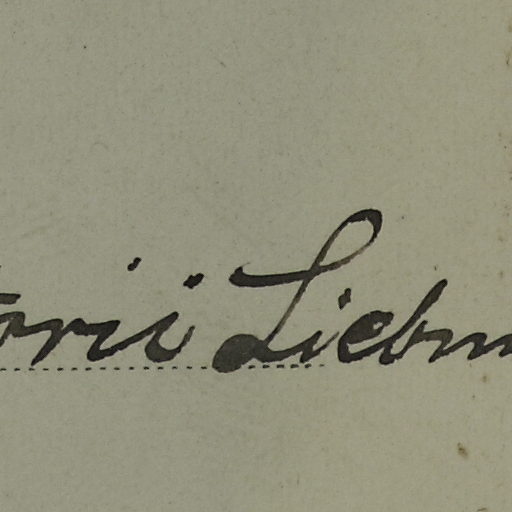 orii Liebm